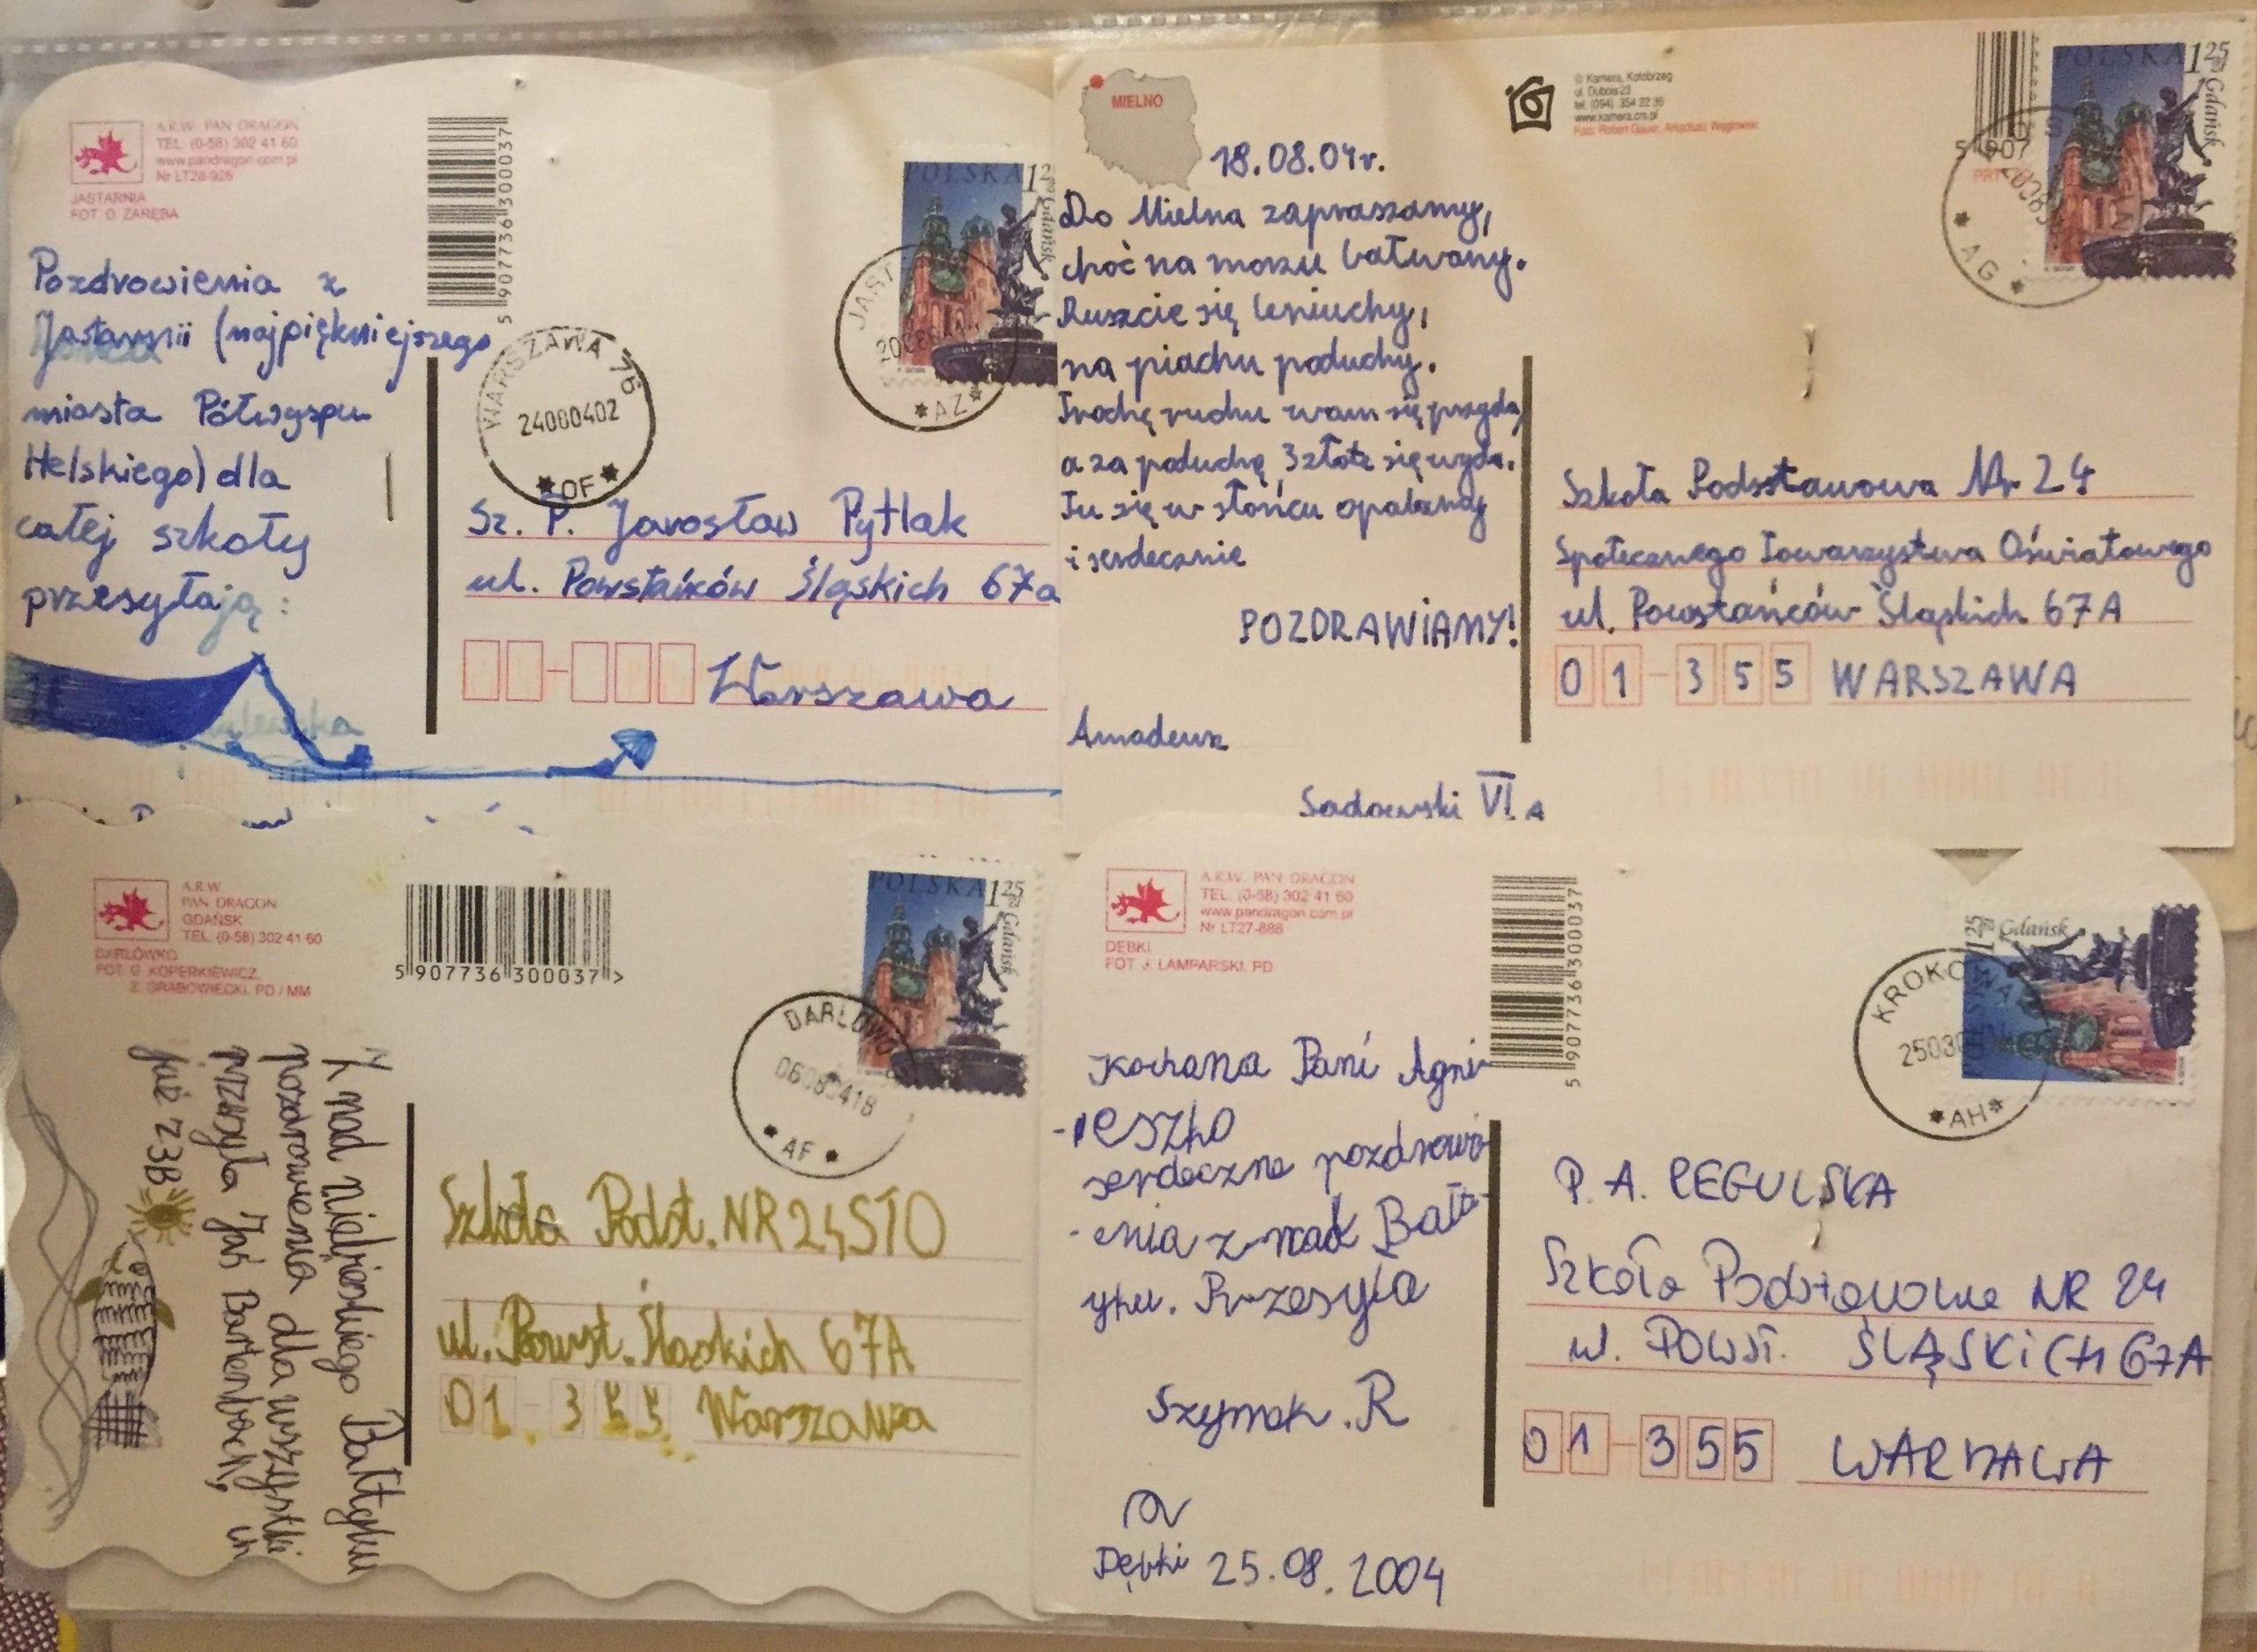 A.R.W. PAN DRAGON
TEL. (0-58) 302 41 60
www.pandragon.com.pl
Nr LT28-926
JASTARNIA
FOT. O. ZARĘBA
5907736300037
POLSKA 1
Gdańsk
JAST
*AZ*
WARSZAWA 76
24080402
*OF*
Pozdrowienia z
Jastarnii (najpiękniejszego
miasta Półwyspu
Helskiego) dla
całej szkoły
przesyłają:
Sz. P. Jarosław Pytlak
ul. Powstańców Śląskich 67a
Warszawa
MIELNO
© Kamera, Kołobrzeg
ul. Dubois 23
tel. (094) 354 22 36
www.kamera.cm.pl
Foto: Robert Gauer, Arkadiusz Węglowski
POLSKA 1 25 zł
Gdańsk
* AG *
18.08.04r.
Do Mielna zapraszamy,
choć na morzu bałwany.
Ruszcie się leniuchy,
na piachu poduchy.
Trochę ruchu wam się przyda,
a za poduchę 3 złote się wyda.
Tu się w słońcu opalamy
i serdecznie
POZDRAWIAMY!
Amadeusz
Sadowski VI A
Szkoła Podsstawowa Nr 24
Społecznego Towarzystwa Oświatowego
ul. Powstańców Śląskich 67A
01-355 WARSZAWA
A.R.W.
PAN DRAGON
GDAŃSK
TEL. (0-58) 302 41 60
DARŁÓWKO
FOT. G. KOPERKIEWICZ,
Z. GRABOWIECKI, PD / MM
5 907736 300037 >
POLSKA 1 25 zł
Gdańsk
DARŁOWO
* AF *
Z nad niebieskiego Bałtyku
pozdrowienia dla wszystkich
przesyła Jaś Bartenbach,
już z 3B
Szkoła Podst. NR 24 STO
ul. Powst. Śląskich 67A
01-355 Warszawa
A.R.W. PAN DRAGON
TEL. (0-58) 302 41 60
www.pandragon.com.pl
Nr LT27-888
DĘBKI
FOT. J. LAMPARSKI, PD
5907736300037
1 25 zł Gdańsk
KROKOWA
*AH*
Kochana Pani Agni-
-eszko
serdeczne pozdrowi-
-enia z nad Bałt-
yku. Przesyła
Szymek. R
Dębki 25.08.2004
P. A. REGULSKA
Szkoła Podstawowa NR 24
ul. POWST. ŚLĄSKiCH 67A
01-355 WARSZAWA